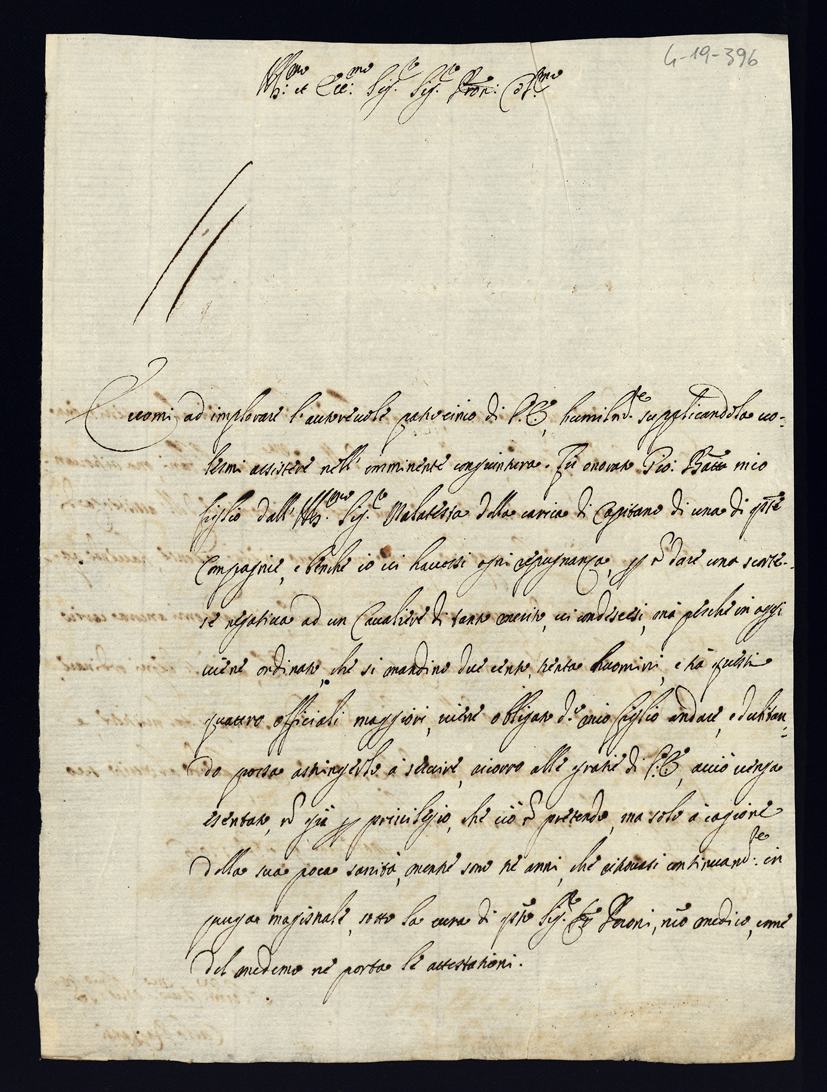 4-19-396
Ill:mo et Ecc:mo Sig.re Sig.re Pron: Col:mo
Eccomi ad implorare l'autorevole patrocinio di V.E., humilm.te supplicandola vo-
lermi assistere nell'imminente congiuntura. Fù onorato Gio: Batta mio
figlio dall'Ill:mo Sig.r Malatesta della carica di Capitano di una di q.ste
Compagnie, e benche io ci havessi ogni repugnanza, p nõ dare una scorte-
se negativa ad un Cavaliere di tanto merito, vi condescesi, mà perche in oggi
viene ordinato, che si mandino due cento, trenta huomini, e trà questi
quattro officiali maggiori, viene obligato d.o mio figlio andare, e dubitan-
do possa astringerlo à servire, ricorro alle gratie di V.E., acciò venga
esentato, nõ già p privilegio, che ciò nõ pretendo, ma solo à cagione
della sua poca sanità, mentre sono tre anni, che ritrovasi continuam.te in
purga magistrale, sotto la cura di q.sto Sig.r Peroni, nr̃o medico, come
del medemo ne porta le attestationi.